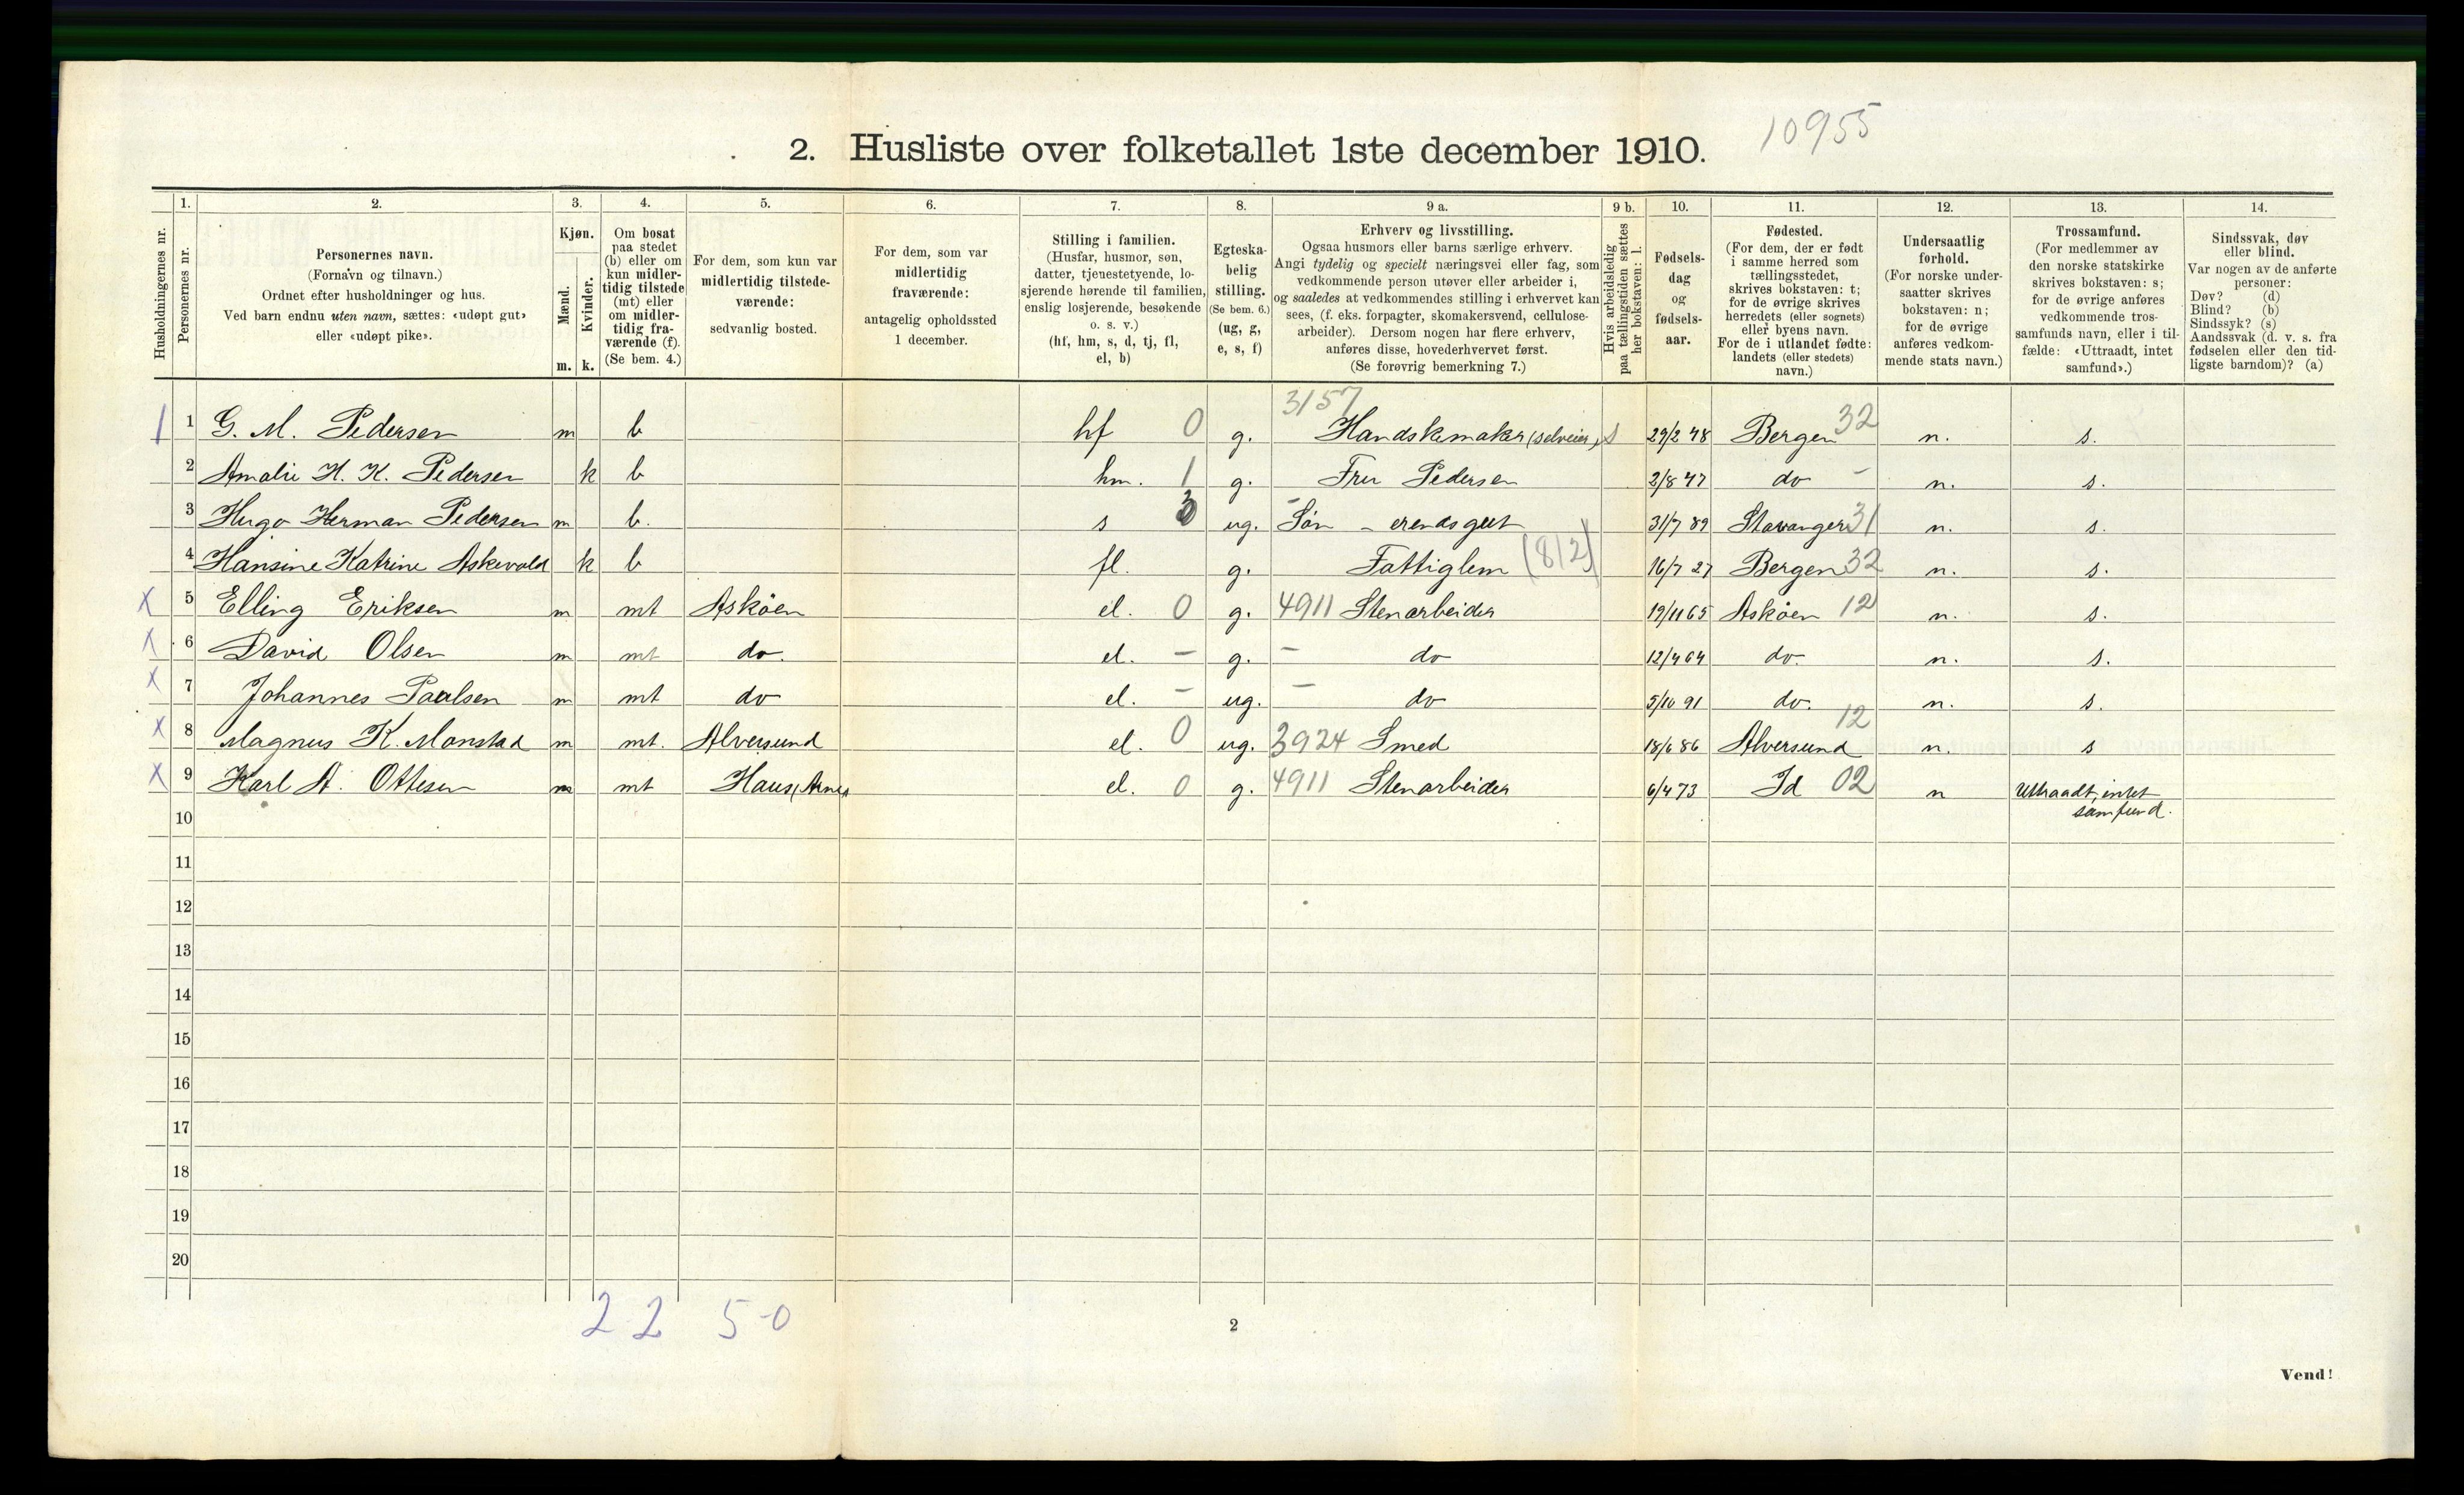 10955
2. Husliste over folketallet 1ste december 1910.
Husholdningernes nr.
1.
Personernes nr.
2.
Personernes navn.
(Fornavn og tilnavn.)
Ordnet efter husholdninger og hus.
Ved barn endnu uten navn, sættes: «udøpt gut»
eller «udøpt pike».
3.
Kjøn.
Mænd.
Kvinder.
m. k.
4.
Om bosat
paa stedet
(b) eller om
kun midler-
tidig tilstede
(mt) eller
om midler-
tidig fra-
værende (f).
(Se bem. 4.)
5.
For dem, som kun var
midlertidig tilstede-
værende:
sedvanlig bosted.
6.
For dem, som var
midlertidig
fraværende:
antagelig opholdssted
1 december.
7.
Stilling i familien.
(Husfar, husmor, søn,
datter, tjenestetyende, lo-
sjerende hørende til familien,
enslig losjerende, besøkende
o. s. v.)
(hf, hm, s, d, tj, fl,
el, b)
8.
Egteska-
belig
stilling.
(Se bem. 6.)
(ug, g,
e, s, f)
9 a.
Erhverv og livsstilling.
Ogsaa husmors eller barns særlige erhverv.
Angi tydelig og specielt næringsvei eller fag, som
vedkommende person utøver eller arbeider i,
og saaledes at vedkommendes stilling i erhvervet kan
sees, (f. eks. forpagter, skomakersvend, cellulose-
arbeider). Dersom nogen har flere erhverv,
anføres disse, hovederhvervet først.
(Se forøvrig bemerkning 7.)
9 b.
Hvis arbeidsledig
paa tællingstiden sættes
her bokstaven: l.
10.
Fødsels-
dag
og
fødsels-
aar.
11.
Fødested.
(For dem, der er født
i samme herred som
tællingsstedet,
skrives bokstaven: t;
for de øvrige skrives
herredets (eller sognets)
eller byens navn.
For de i utlandet fødte:
landets (eller stedets)
navn.)
12.
Undersaatlig
forhold.
(For norske under-
saatter skrives
bokstaven: n;
for de øvrige
anføres vedkom-
mende stats navn.)
13.
Trossamfund.
(For medlemmer av
den norske statskirke
skrives bokstaven: s;
for de øvrige anføres
vedkommende tros-
samfunds navn, eller i til-
fælde: «Uttraadt, intet
samfund».)
14.
Sindssvak, døv
eller blind.
Var nogen av de anførte
personer:
Døv? (d)
Blind? (b)
Sindssyk? (s)
Aandssvak (d. v. s. fra
fødselen eller den tid-
ligste barndom)? (a)
3157
1 1 G. M. Pedersen m b hf 0 g. Handskemaker (selveier) s 29/2 48 Bergen 32 n. s.
2 Amalie H. K. Pedersen k b hm. 1 g. Fru Pedersen 2/8 47 do - n. s.
3 Hugo Herman Pedersen m b. s 3 ug. Søn - erendsgut 31/7 89 Stavanger 31 n. s.
4 Hansine Katrine Askevold k b fl. g. Fattiglem (812) 16/7 27 Bergen 32 n. s.
X 5 Elling Eriksen m mt Askøen el. 0 g. 4911 Stenarbeider 19/11 65 Askøen 12 n. s.
X 6 David Olsen m mt do. el. - g. - do 12/4 64 do. n. s.
X 7 Johannes Paulsen m mt do el. - ug. - do 5/10 91 do. n. s.
X 8 Magnus K. Monstad m mt. Alversund el. 0 ug. 3924 Smed 18/6 86 Alversund 12 n. s
X 9 Karl A. Ottesen m mt Haus (Arne) el. 0 g. 4911 Stenarbeider 6/4 73 Id 02 n Uttraadt, intet
samfund.
10
11
12
13
14
15
16
17
18
19
20
2 2 5-0
2
Vend!